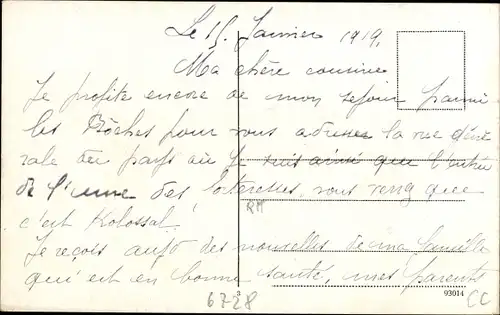 Le 15 Janvier 1919,
Ma chère cousine
Je profite encore de mon sejour parmi
les Bôches pour vous adresser la vue géné
rale du pays où je suis ainsi que l'entrée
de l'une des vous que
c'est Kolossal.
Je reçois aujd des nouvelles de ma famille
qui est en bonne santé, mes parents
RM
6728
93014
CC